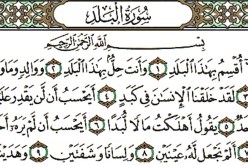 سُورَةُ الْبَلَدِ
بِسْمِ اللَّهِ الرَّحْمَٰنِ الرَّحِيمِ
لَا أُقْسِمُ بِهَٰذَا الْبَلَدِ ١ وَأَنتَ حِلٌّ بِهَٰذَا الْبَلَدِ ٢ وَوَالِدٍ وَمَا وَلَدَ
٣ لَقَدْ خَلَقْنَا الْإِنسَٰنَ فِي كَبَدٍ ٤ أَيَحْسَبُ أَن لَّن يَقْدِرَ عَلَيْهِ
٥ يَقُولُ أَهْلَكْتُ مَالًا لُّبَدًا ٦ أَيَحْسَبُ أَن لَّمْ يَرَهُ
أَلَمْ نَجْعَل لَّهُ عَيْنَيْنِ ٨ وَلِسَانًا وَشَفَتَيْنِ ٩ وَهَدَيْنَٰهُ